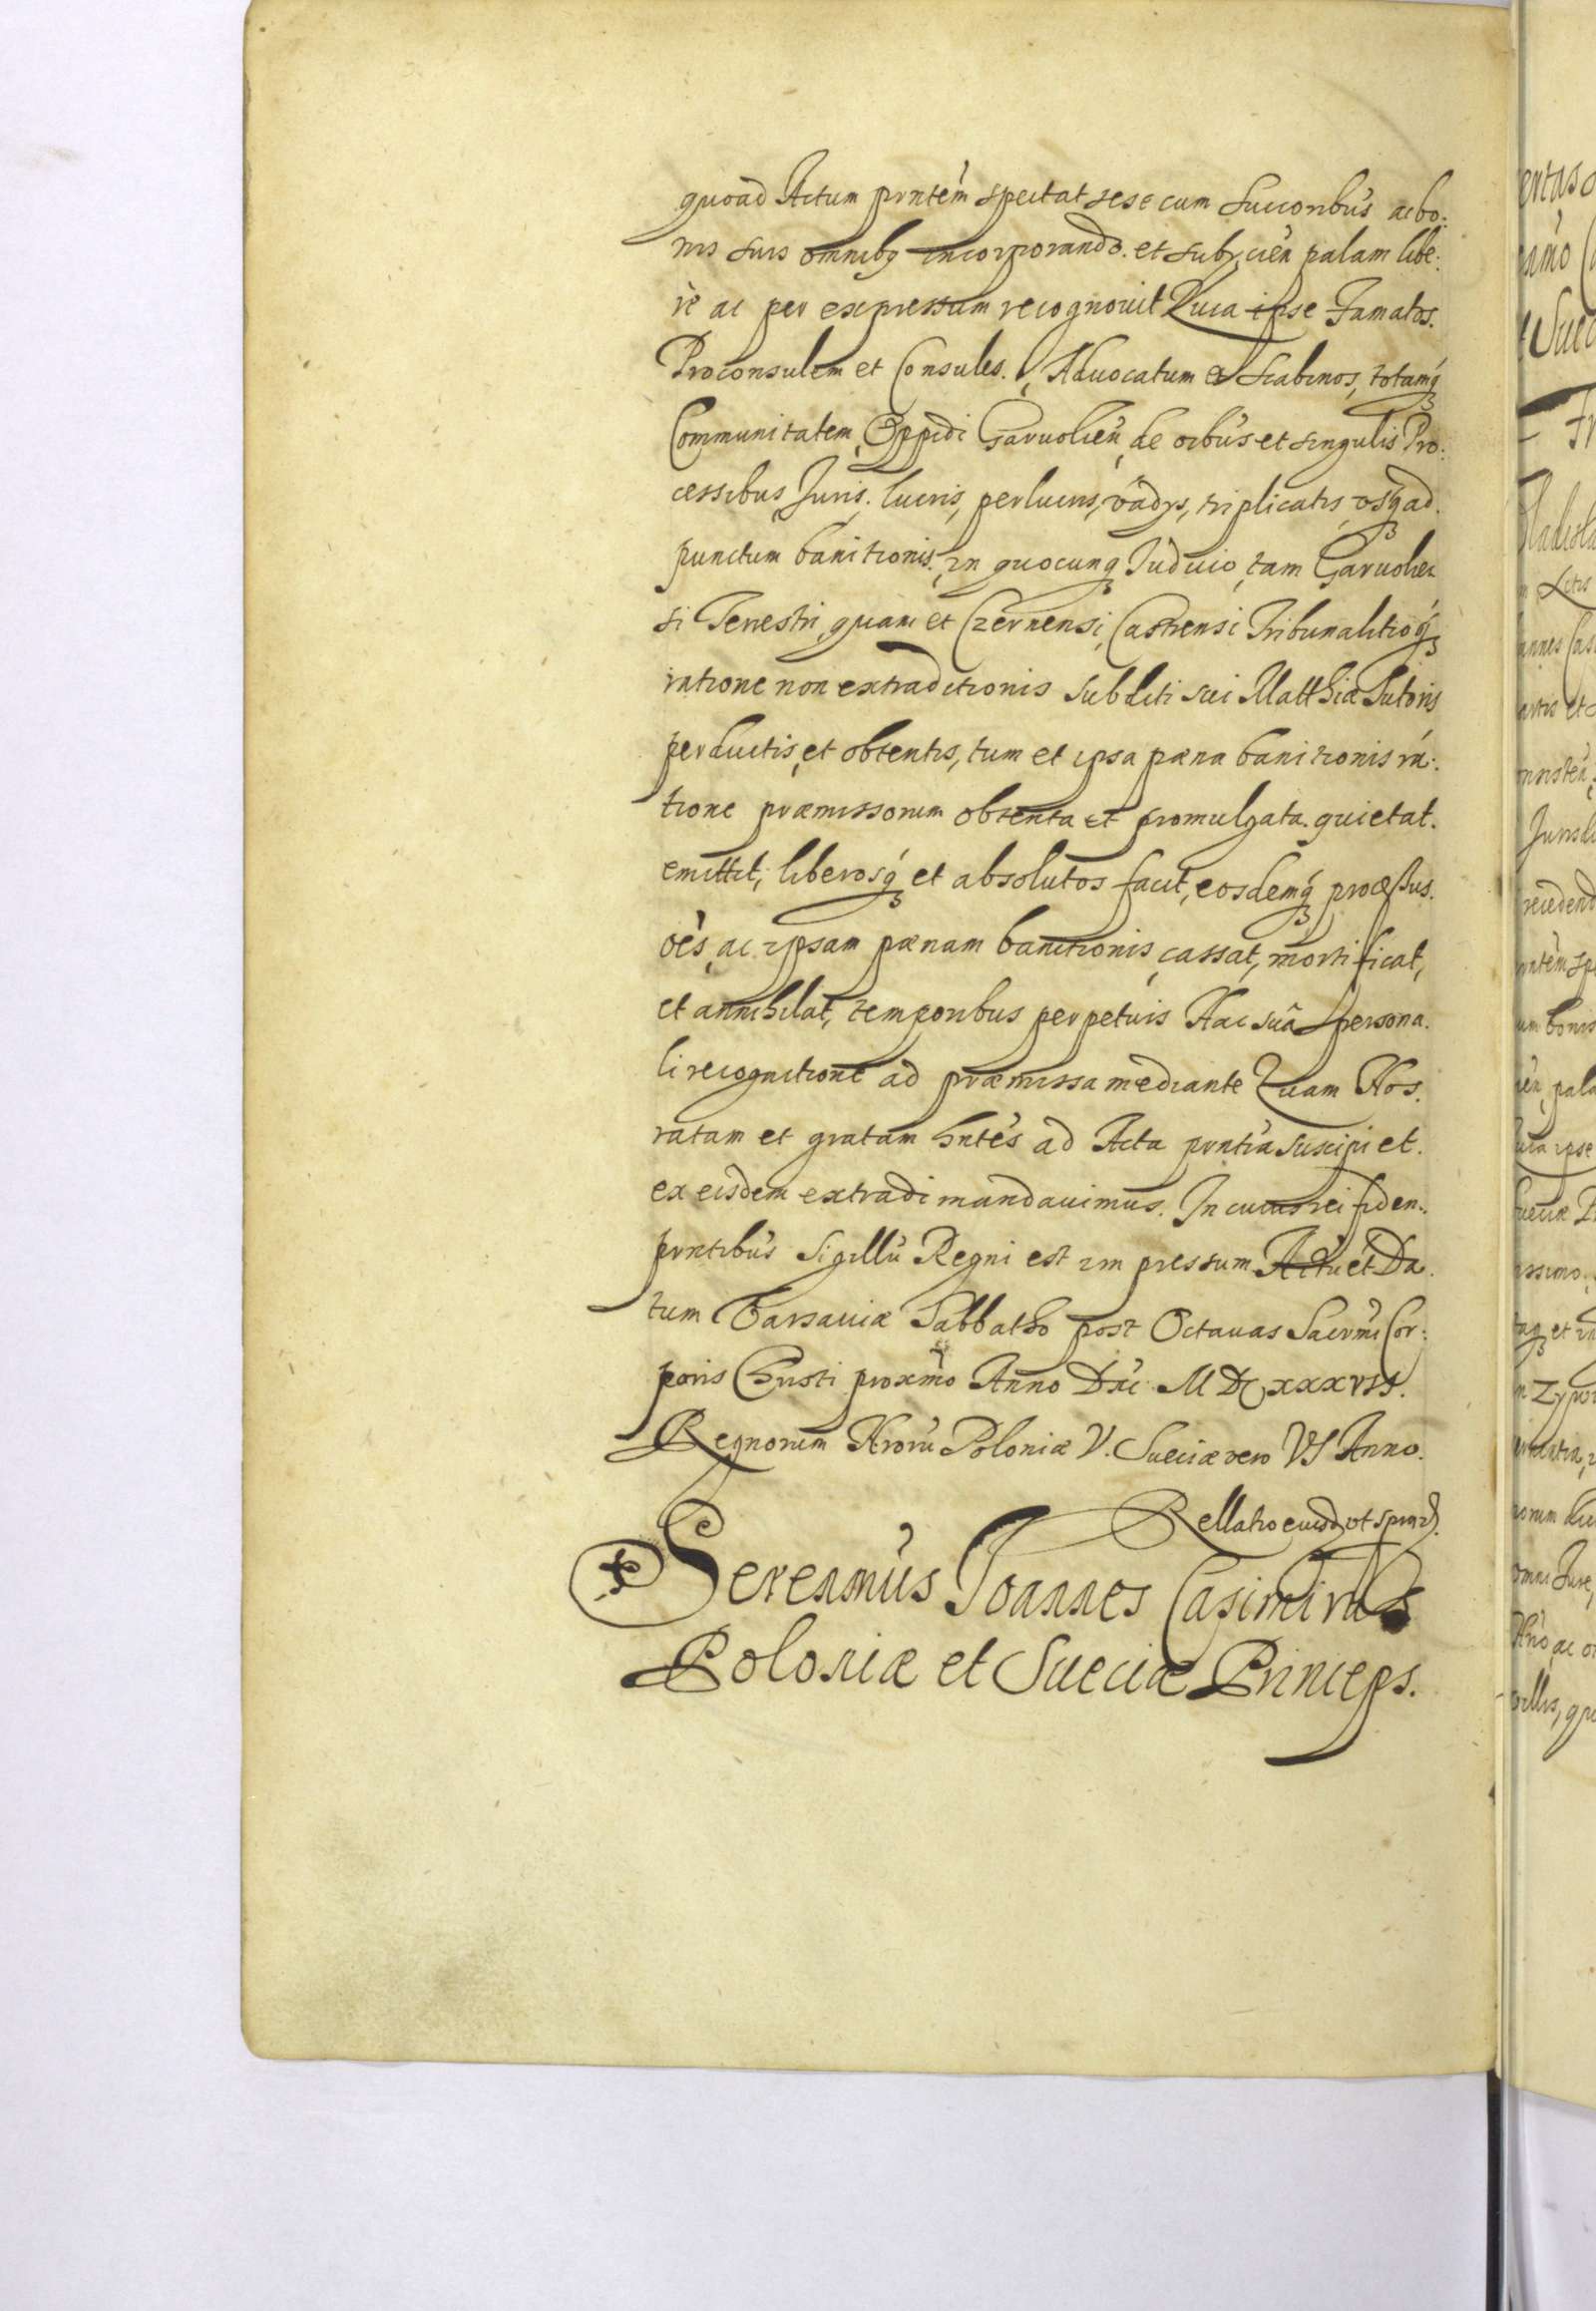 quoad Actum pūntem spectat sese cum succoribus ac bo:
nis suis omnibq incorporando. et subijcien palam libe:
re ac per expressum recognovit Quia ipse Famatos.
Proconsulem et Consules. Advocatum et Scabinos, totamq
Communitatem Oppidi Garvolien, de oibus et singulis Pro:
cessibus Juris. lucris, perlucris, vadys, triplicatis, vsq ad
punctum banitionis. in quocunq Judicio, tam Garvolien
si Terrestri, quam et Czernensi, Castrensi Tribunalitioq
ratione non extraditionis subditi sui Matthiæ Sutoris
perductis, et obtentis, tum et ipsa pæna banitionis ra:
tione præmissorum obtenta et promulgata. quietat.
emittit, liberosq et absolutos facit, eosdemq processus.
oes, ac ipsam pænam banitionis, cassat, mortificat,
et annihilat, temporibus perpetuis Hac sua persona.
li recognitione ad præmissa mediante Quam Nos.
ratam et gratam hntes ad Acta pnntia suscipi et.
ex eisdem extradi mandavimus. In cuius rei fidem.
pnntibus Sigillu Regni est impressum. Actu et Da.
tum Varsaviæ Sabbatho post Octavas Sacrmi Cor:
poris Christi proximo Anno Dni M DC xxxvij.
Regnorum Nroru Poloniæ V. Sueciæ vero VI Anno.
Rellatio eiusd, ut supra.
Serenmus Joannes Casimirus
Poloniæ et Sueciæ Princeps.